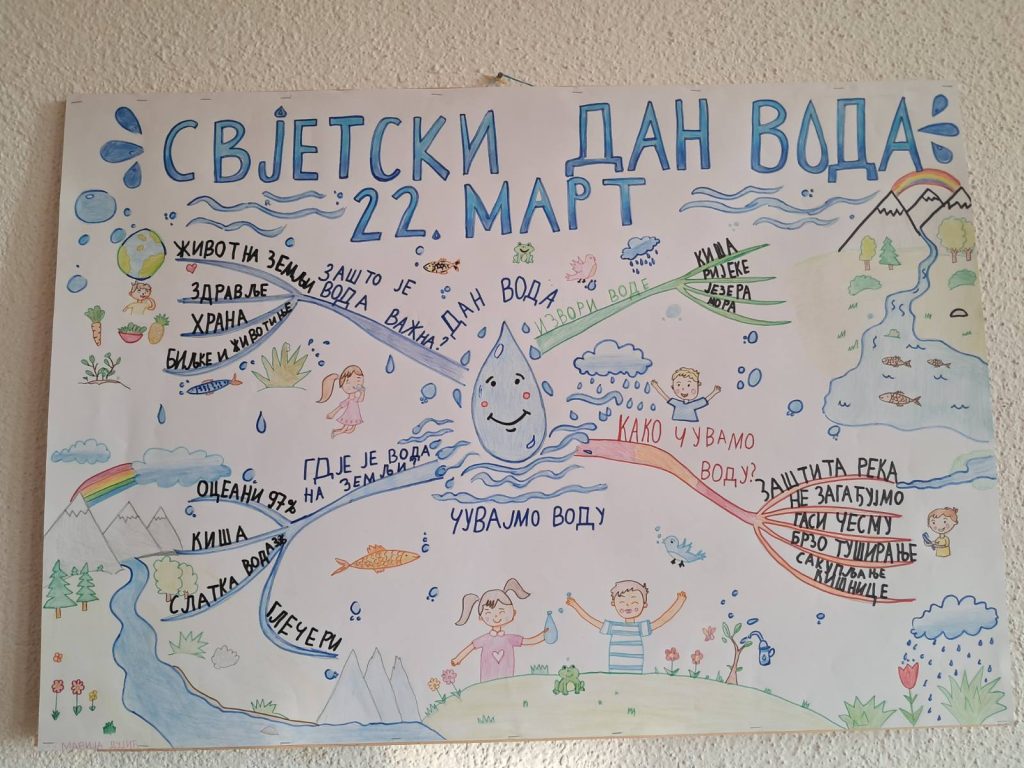 СВЈЕТСКИ ДАН ВОДА
22. МАРТ
ЗАШТО ЈЕ
ВОДА
ВАЖНА?
ЖИВОТ НА ЗЕМЉИ
ЗДРАВЉЕ
ХРАНА
БИЉКЕ И ЖИВОТИЊЕ
ДАН ВОДА
ИЗВОРИ ВОДЕ
КИША
РИЈЕКЕ
ЈЕЗЕРА
МОРА
ГДЈЕ ЈЕ ВОДА
НА ЗЕМЉИ?
ОЦЕАНИ 97%
КИША
СЛАТКА ВОДА 3%
ГЛЕЧЕРИ
ЧУВАЈМО ВОДУ
КАКО ЧУВАМО
ВОДУ?
ЗАШТИТА РЕКА
НЕ ЗАГАЂУЈМО
ГАСИ ЧЕСМУ
БРЗО ТУШИРАЊЕ
САКУПЉАЊЕ
КИШНИЦЕ